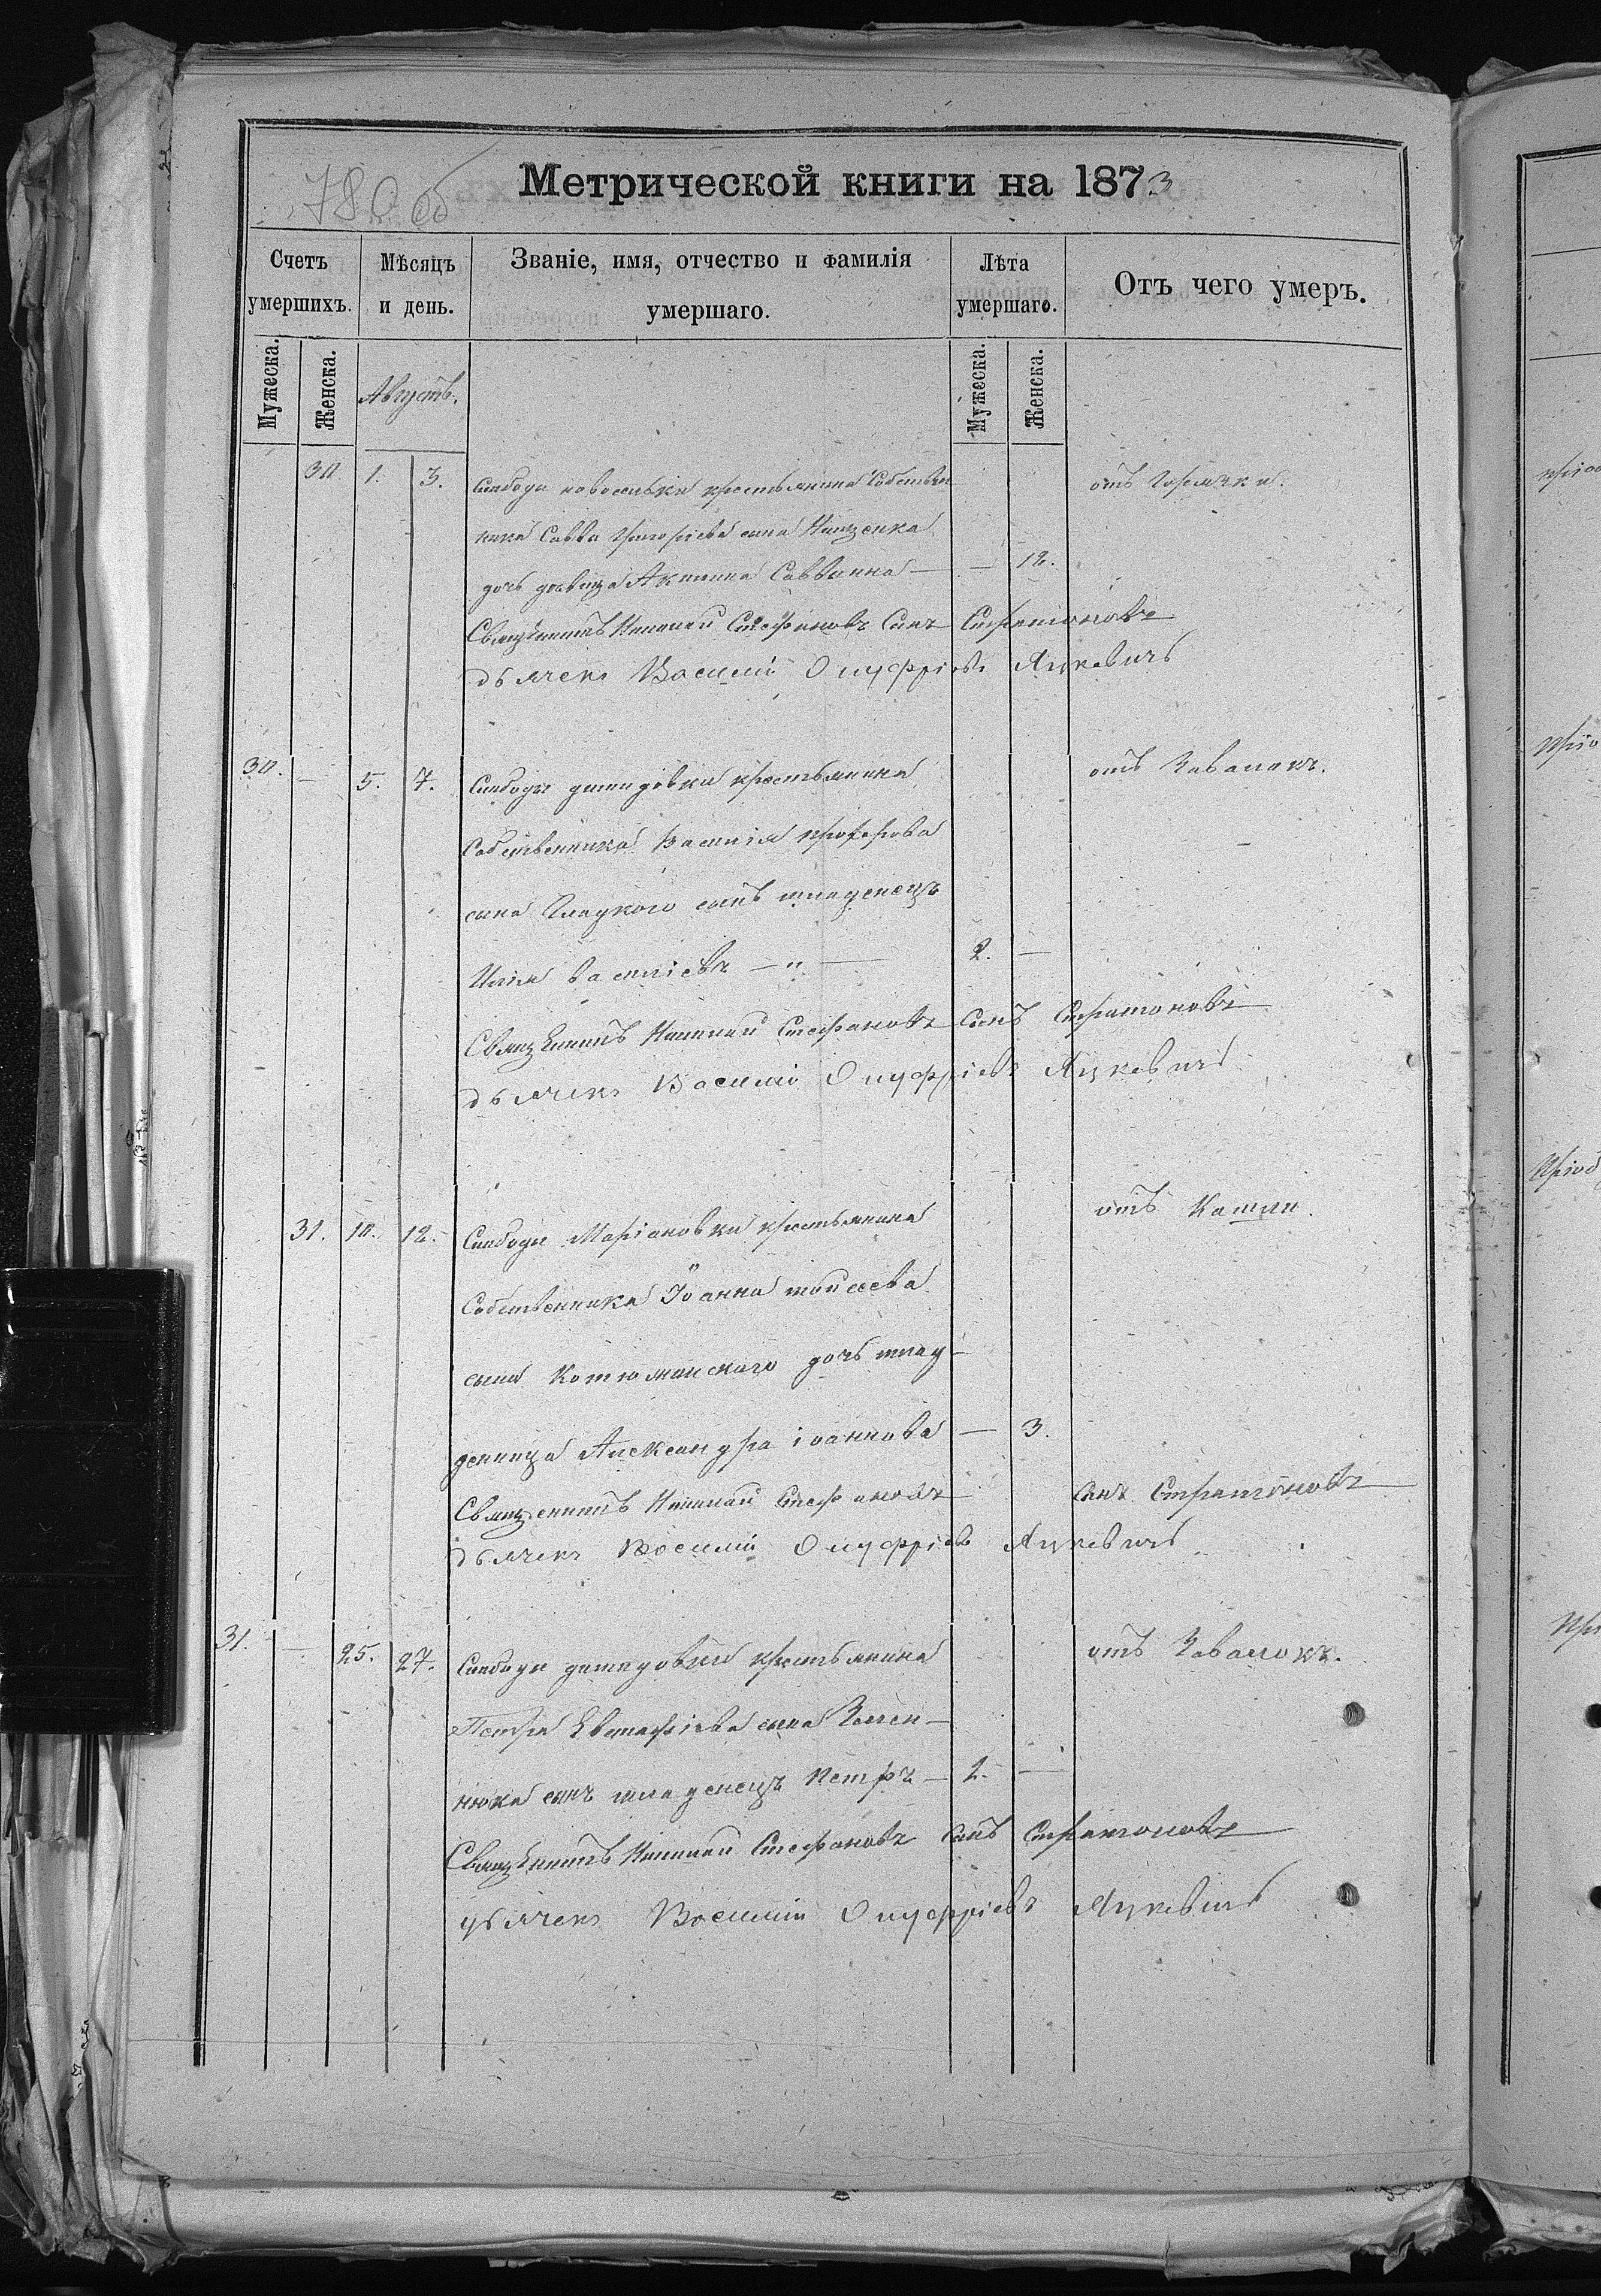 78 об
Метрической книги на 1873
Счетъ умершихъ.
Мѣсяцъ и день.
Званіе, имя, отчество и фамилія умершаго.
Лѣта умершаго.
Отъ чего умеръ.
Мужеска.
Женска.
Августъ.
Мужеска.
Женска.
30. 1. 3. Слободы новоселки крестьянина Собствен отъ Горячки.
ника Саввы Григоріева сына Нищенка
дочь девица Акилина Саввина — — 12.
Священникъ Николай Стефановъ Сынъ Стратоновъ
дьячекъ Василій Онуфріевъ Яцкевичъ
30. — 5. 7. Слободы демидовки крестьянина отъ Завалокъ.
Собственника Василія прохорова
сына Гладкого сынъ младенецъ
Илія василіевъ — „ — 2. —
Священникъ Николай Стефановъ Сынъ Стратоновъ
дьячекъ Василій Онуфріевъ Яцкевичъ
31. 10. 12. Слободы Маріановки крестьянина отъ Кашли.
Собственника Іоанна моисеева
сына Котюжанскаго дочь млад-
деница Александра іоаннова — 3.
Священникъ Николай Стефановъ Сынъ Стратоновъ
дьячекъ Василій Онуфріевъ Яцкевичъ
31. — 25. 27. Слободы демидовки крестьянина отъ Завалокъ.
Петра сына
нюка сынъ младенецъ Петръ — 2. —
Священникъ Николай Стефановъ Сынъ Стратоновъ
дьячекъ Василій Онуфріевъ Яцкевичъ